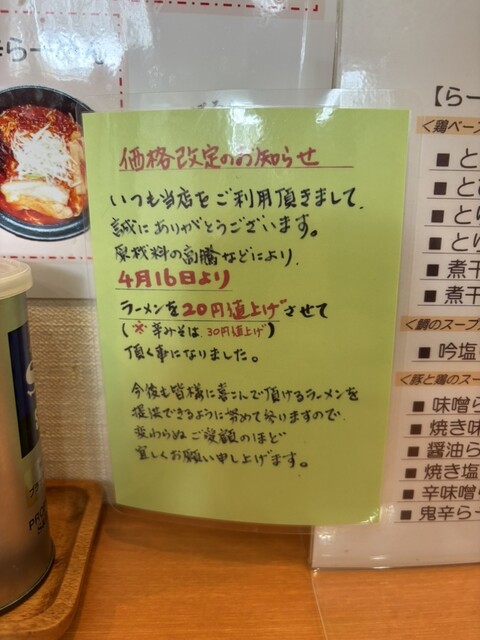 価格改定のお知らせ
いつも当店をご利用頂きまして、
誠にありがとうございます。
原材料の高騰などにより、
4月16日より
ラーメンを20円値上げさせて
(※辛みそは、30円値上げ)
頂く事になりました。
今後も皆様に喜こんで頂けるラーメンを
提供できるように努めて参りますので、
変わらぬご愛顧のほど
宜しくお願い申し上げます。
【らー
<鶏ベー
■ と
■ と
■ とり
■ とり
■ 煮干
■ 煮干
<鍋のスープ
■ 吟塩
<豚と鶏のスー
■ 味噌ら
■ 焼き味
■ 醤油ら
■ 焼き塩
■ 辛味噌ら
■ 鬼辛らー